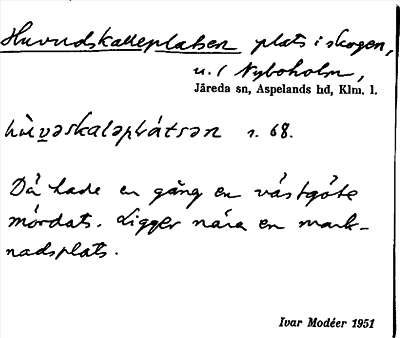 Huvudskalleplatsen plats i skogen,
u. / Nyboholm,
Järeda sn, Aspelands hd, Klm. l.
hùvəskaləplátsən s. 68.
Då hade en gång en västgöte
mördats. Ligger nära en mark-
nadsplats.
Ivar Modéer 1951